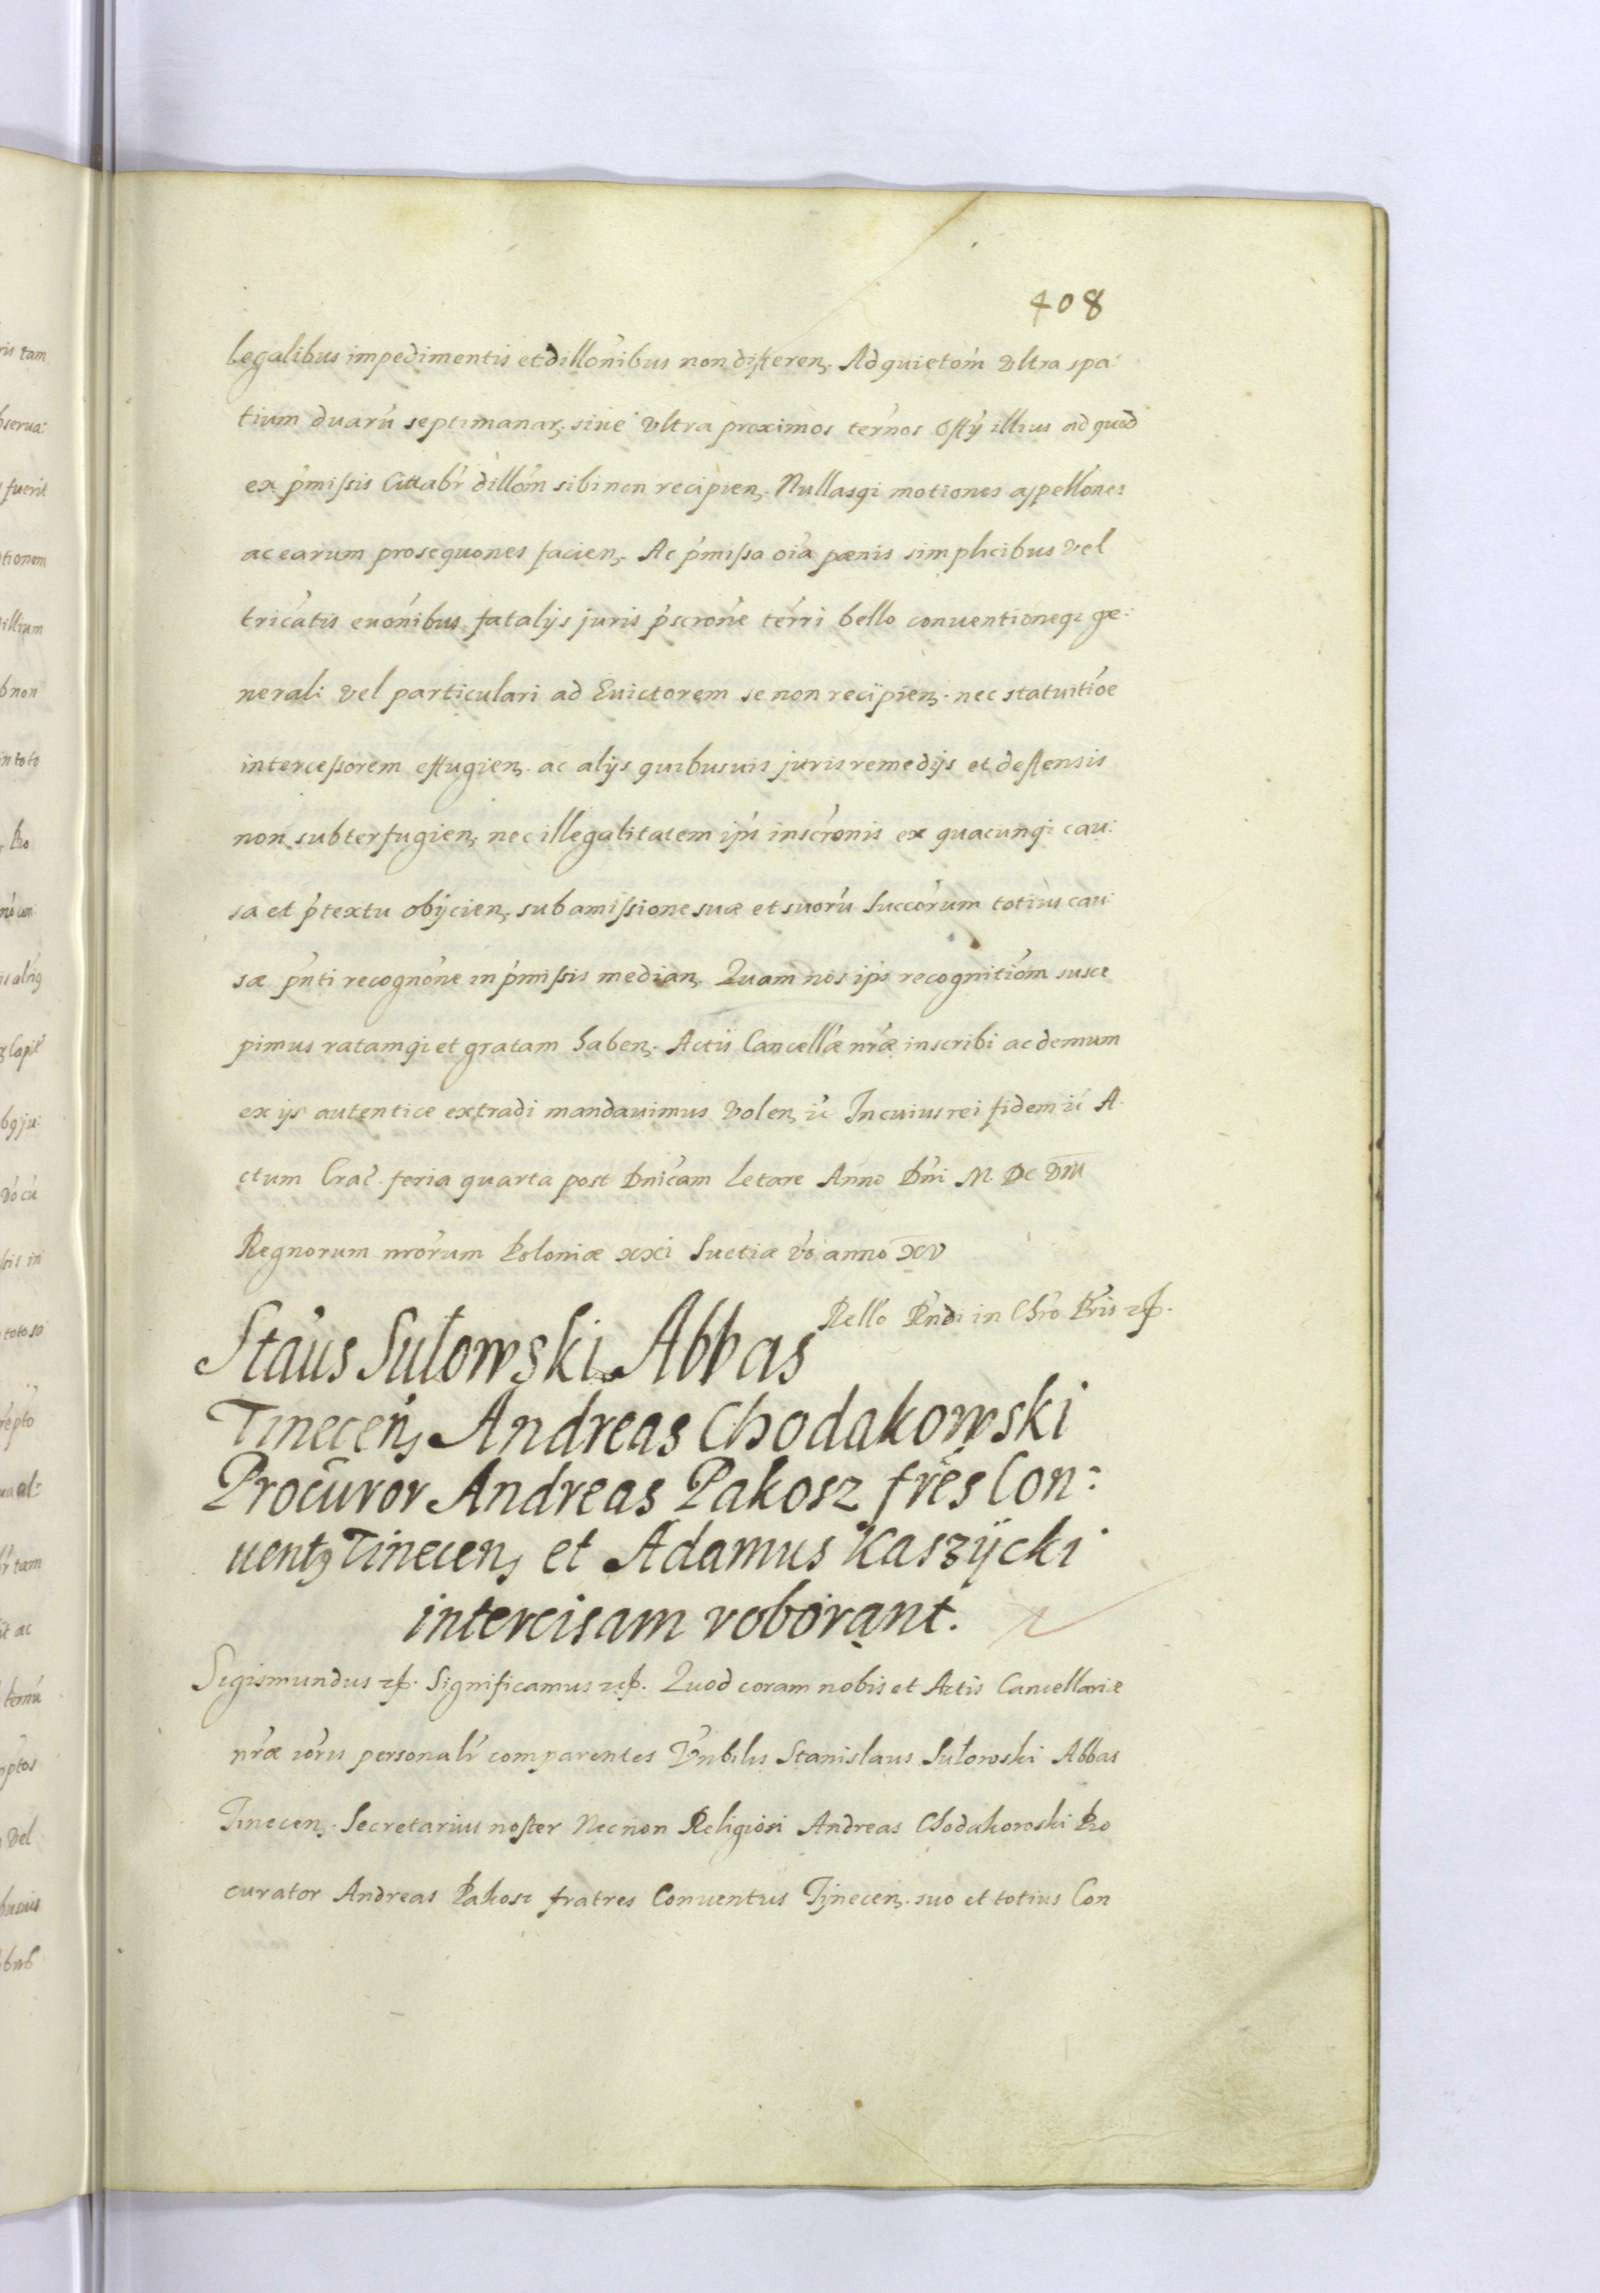 408
legalibus impedimentis et dillo᷃nibus non differen. Ad quieto᷃m vltra spa:
tium duaru᷃ septimanar. siue vltra proximos ter᷃nos offÿ illius ad quod
ex p᷃missis Cittab᷃r dillo᷃m sibi non recipien. Nullasqi motiones appello᷃nes
ac earum prosequones facien. Ac p᷃missa oi᷃a pœnis simplicibus vel
tric᷃atis euo᷃nibus fatalijs juris p᷃scro᷃ne ter᷃ri bello conuentioneqz ge:
nerali vel particulari ad Euictorem se non recipien. nec statuiti᷃oe
intercessorem effugien. ac alijs quibusuis juris remedijs et deffensis
non subterfugien, nec illegalitatem ip᷃i inscr᷃onis ex quacunqi cau:
sa et p᷃textu obijcien, sub amissione suæ et suoru᷃ Succo᷃rum totius cau:
sæ p᷃nti recogno᷃ne in p᷃missis median. Quam nos ip᷃s recogniti᷃om susce
pimus ratamqi et gratam haben. Actis Cancell᷃æ nr᷃æ inscribi ac demum
ex ijs autentice extradi mandauimus volen, ic᷃ In cuius rei fidem ic᷃ A:
ctum Crac᷃. feria quarta post Dni᷃cam Letare Anno Dn᷃i M DC VIII
Regnorum nro᷃rum Poloniæ XXI Suetiæ v᷃o anno XV
Rello R᷃ndi in Chr᷃o P᷃ris etc.
Sta᷃us Sułowski Abbas
Tinecen, Andreas Chodakowski
Procu᷃ror Andreas Pakosz fr᷃es Con:
uent9 Tinecen, et Adamus Kaszÿcki
intercisam roborant.
Sigismundus etc. Significamus etc. Quod coram nobis et Actis Cancellariæ
nr᷃æ coru᷃ personal᷃r comparentes V᷃nbilis Stanislaus Sułowski Abbas
Tinecen. Secretarius noster Necnon Religiosi Andreas Chodakowski Pro
curator Andreas Pakosz fratres Conuentus Tÿnecen. suo et totius Con